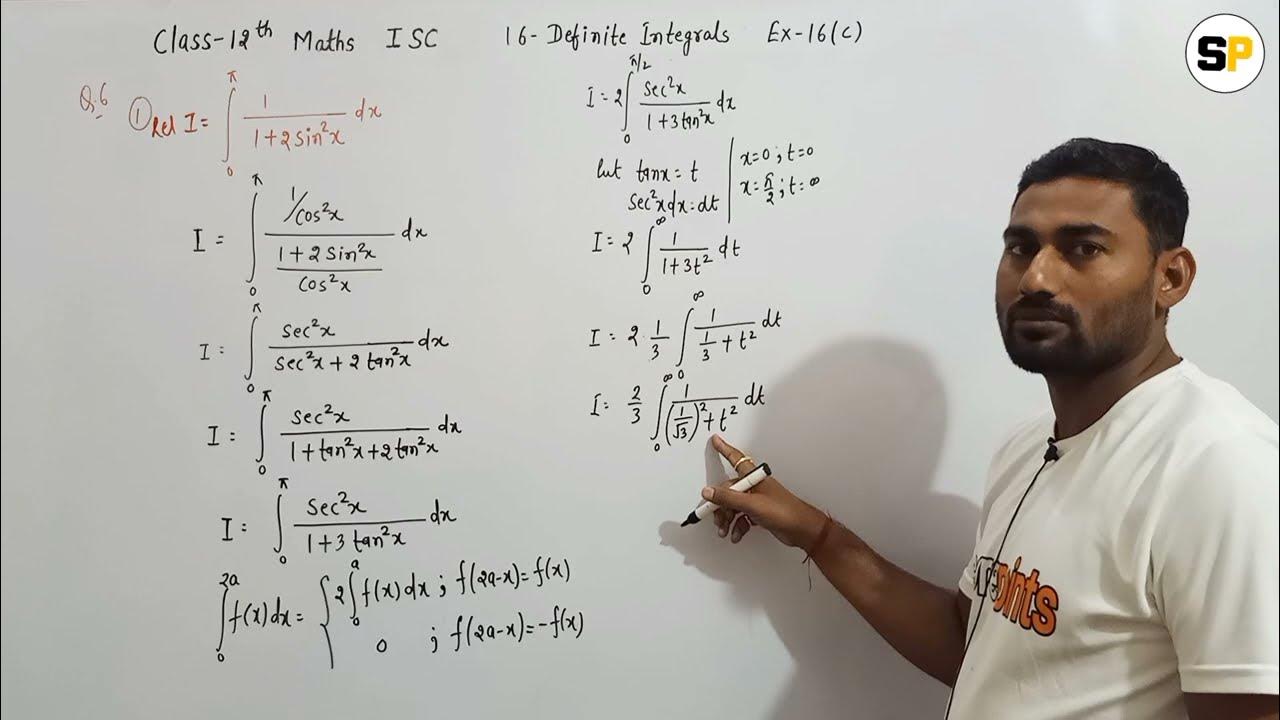 Class-12th Maths ISC 16- Definite Integrals Ex-16(c)
SP
Q.6 ① Let I = ∫₀^π 1/(1+2sin²x) dx
I = ∫₀^π (1/cos²x)/((1+2sin²x)/cos²x) dx
I = ∫₀^π sec²x/(sec²x+2tan²x) dx
I = ∫₀^π sec²x/(1+tan²x+2tan²x) dx
I = ∫₀^π sec²x/(1+3tan²x) dx
∫₀^2a f(x)dx = { 2∫₀^a f(x)dx ; f(2a-x)=f(x)
0 ; f(2a-x)=-f(x)
I = 2∫₀^π/2 sec²x/(1+3tan²x) dx
let tanx = t | x=0 ; t=0
sec²xdx=dt | x=π/2 ; t=∞
I = 2∫₀^∞ 1/(1+3t²) dt
I = 2·1/3 ∫₀^∞ 1/(1/3+t²) dt
I = 2/3 ∫₀^∞ 1/((1/√3)²+t²) dt
points